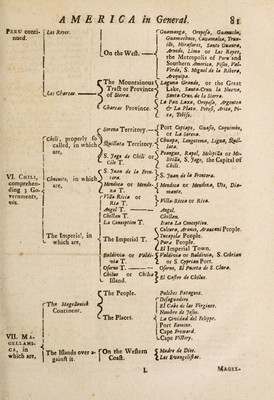 AMERICA in General. 81
PERU conti-
nued.
Los Reyes.
On the West.
Guamanga, Oropesa, Guanuio,
Guamachuco, Caxamalca, Trux-
illo, Miraflores, Santo Guaura,
Arnedo, Lima or Los Reyes,
the Metropolis of Peru and
Southern America, Pisca, Val-
Verde, S. Miguel de la Ribera,
Arequipa.
Los Charcas
The Mountainous
Tract or Province
of Sierra.
Laguna Grande, or the Great
Lake, Santa-Cruz la Nueva,
Santa Cruz de la Sierra.
Charcas Province.
La Paz, Laxa, Oropesa, Argenton
& La Plata, Potosi, Arica, Pi-
ca, Tobiso.
VI. CHILI,
comprehen-
ding 3 Go-
vernments,
viz.
Chili, properly so
called, in which
are,
Serena Territory.
Port Copiapo, Guasco, Coquimbo,
or La Serena.
Quillata Territory.
Chuapa, Longotoma, Ligua, Quil-
lata.
S. Jago de Chili or
Cile T.
Peangue, Rapel, Melipilla or Mo-
Stella, S. Jago, the Capital of
Chili.
Chucuito, in which
are,
S. Juan de la Fron-
tera.
S. Juan de la Frontera.
Mendoza de Mendo-
za T.
Mendoza or Mendoza, Uco, Dia-
mante.
Villa-Ricca or
Rica T.
Villa-Ricca or Rica.
Angol T.
Angol.
Chillan T.
Chillan.
La Conception T.
Itata La Conception.
The Imperial, in
which are,
The Imperial T.
Colcura, Arauco, Arauzani People.
Tucapolo People.
Pura People.
El Imperial Town.
Baldivia or Valdi-
via T.
Baldivia or Valdivia, S. Cabrian
or S. Cyprian Port.
Osorno T.
Osorno, El Puerta de S. Clara.
Chiloe or Chilua
Island.
El Castro de Chiloe.
VII. MA-
GELLANI-
CA, in
which are,
The Magellanick
Continent.
The People.
Pulches Patagons.
The Places.
Desaguadero.
El Cabo de las Virgines.
Nombre de Jesus.
La Cividad del Felippo.
Port Famine.
Cape Froward.
Cape Victory.
The Islands over a-
gainst it.
On the Western
Coast.
Madre de Dios.
Los Evangelistas.
L
MAGEL-